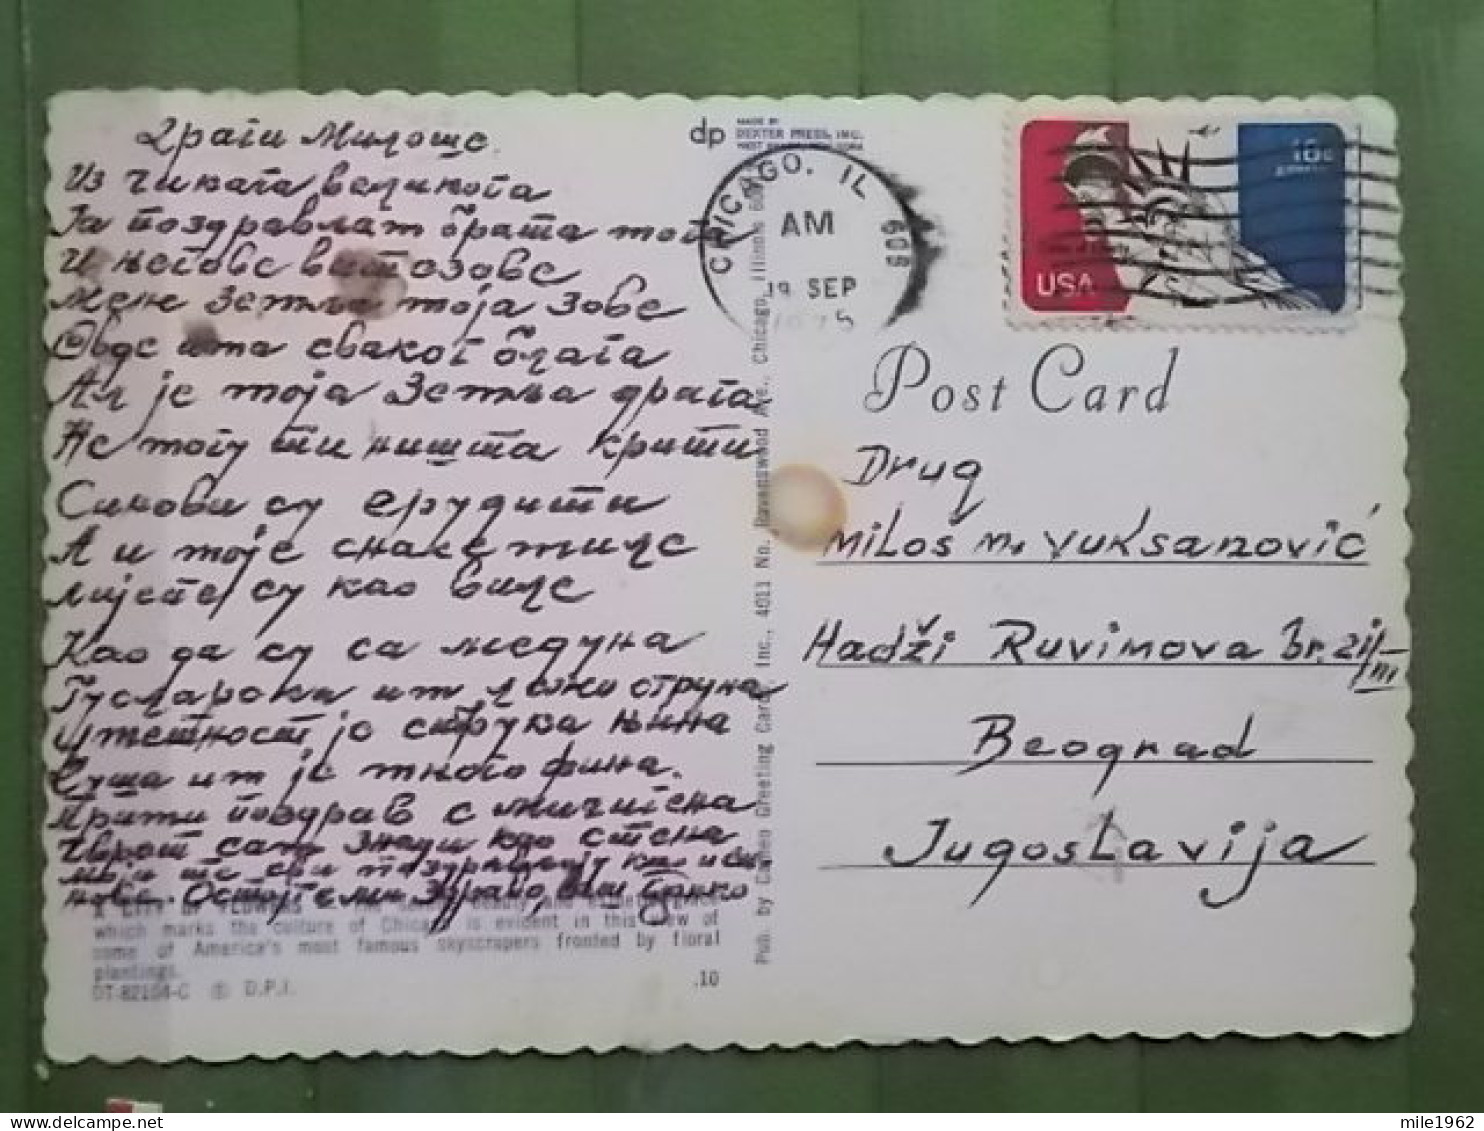 Драги Милоше.
Из Чикага великога
Ја поздрављам брата мога
И његове витозове
Мене Земља моја зове
Овде има сваког блага
Ал је моја Земља драга
Не могу ти ништа крити
Синови су ерудити
А и моје снаке миле
лијепе су као виле
Као да су са медуна
Гусларски им
Уметност јо струка њина
Суша им је много фина.
Прими поздрав с мичигена
Чврст сам знади као стена
нова. Остајте ми Здраво, Ваш Бранко
A CITY OF FLOWERS
which marks the culture of Chicago is evident in this view of
some of America's most famous skyscrapers fronted by floral
plantings.
DT-82104-C © D.P.I.
.10
dp
MADE BY
DEXTER PRESS, INC.
Pub. by Cameo Greeting Cards, Inc., 4011 No. Ravenswood Ave., Chicago, Illinois
CHICAGO, IL 606
AM
19 SEP
1975
USA
Post Card
Drug
Miloš M. Vuksanović
Hadži Ruvimova br. 21/III
Beograd
Jugoslavija
mile1962